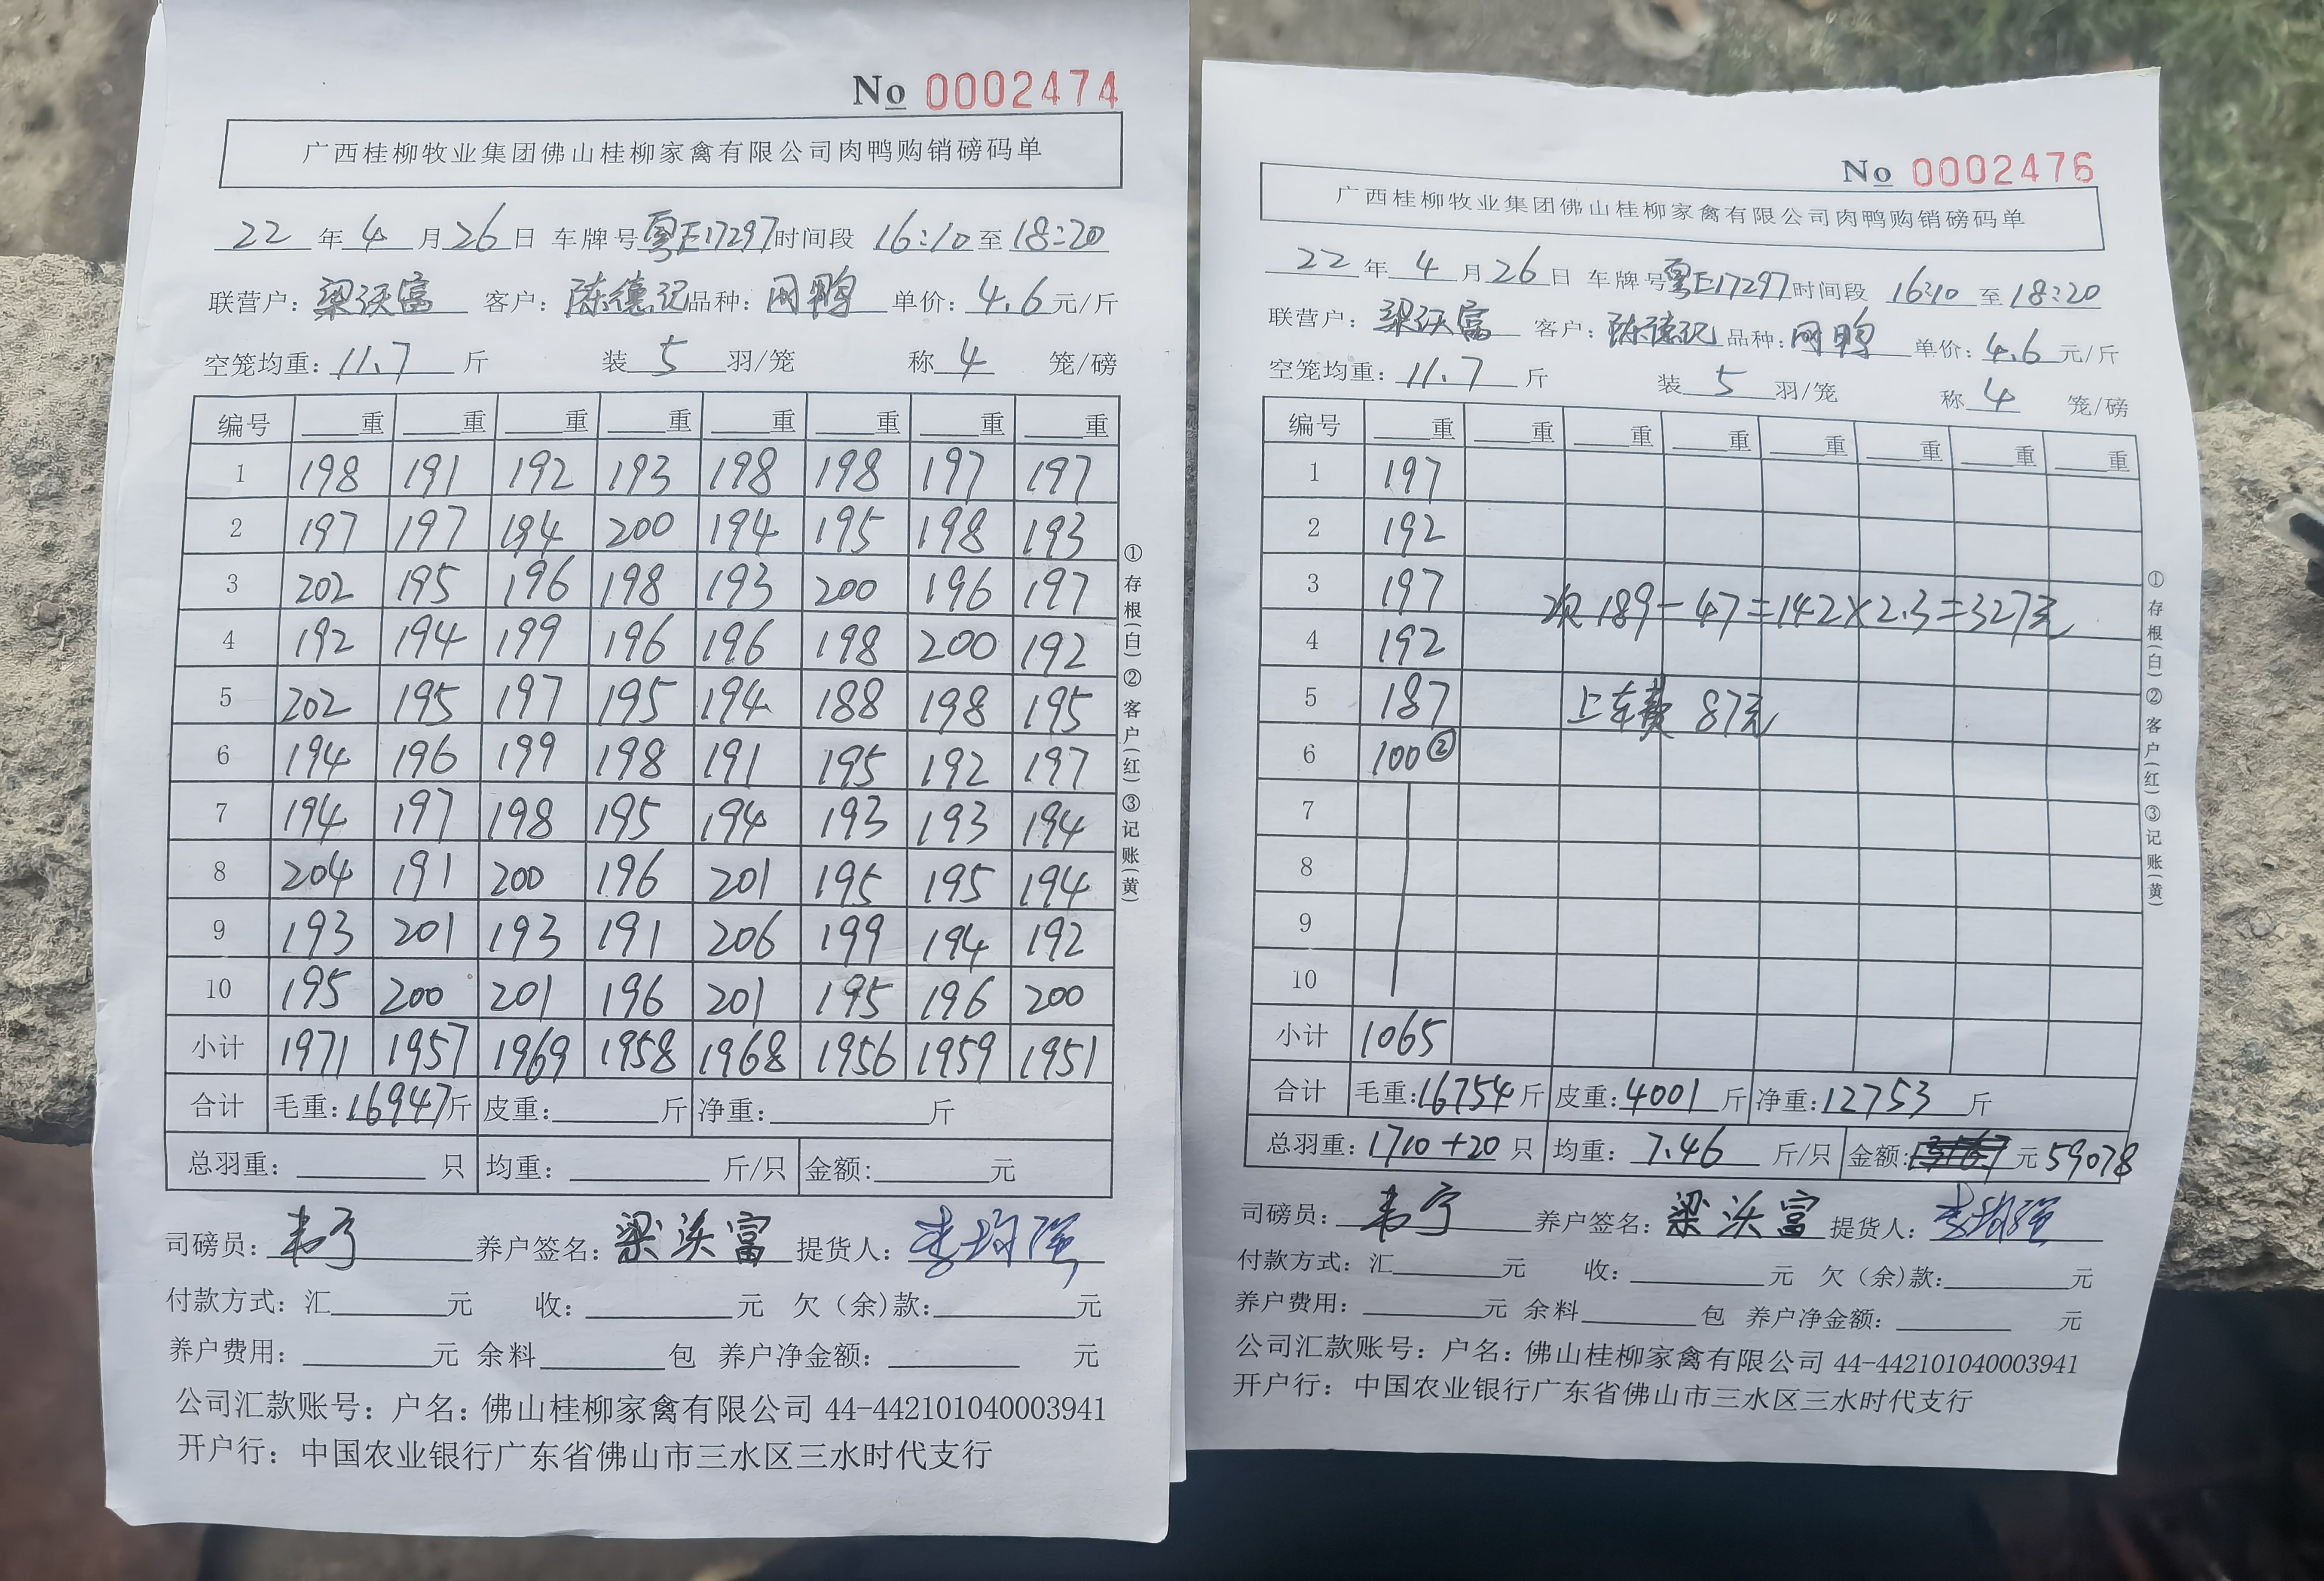 No 0002474
广西桂柳牧业集团佛山桂柳家禽有限公司肉鸭购销磅码单
22 年 4 月 26 日 车牌号 粤E17297 时间段 16:10 至 18:20
联营户: 梁沃富 客户: 陈德记 品种: 网鸭 单价: 4.6 元/斤
空笼均重: 11.7 斤 装 5 羽/笼 称 4 笼/磅
编号 重 重 重 重 重 重 重 重
1 198 191 192 193 198 198 197 197
2 197 197 194 200 194 195 198 193
3 202 195 196 198 193 200 196 197
4 192 194 199 196 196 198 200 192
5 202 195 197 195 194 188 198 195
6 194 196 199 198 191 195 192 197
7 194 197 198 195 194 193 193 194
8 204 191 200 196 201 195 195 194
9 193 201 193 191 206 199 194 192
10 195 200 201 196 201 195 196 200
小计 1971 1957 1969 1958 1968 1956 1959 1951
合计 毛重: 16947 斤 皮重: 斤 净重: 斤
总羽重: 只 均重: 斤/只 金额: 元
司磅员: 韦宁 养户签名: 梁沃富 提货人: 李均强
付款方式: 汇 元 收: 元 欠(余)款: 元
养户费用: 元 余料 包 养户净金额: 元
公司汇款账号: 户名: 佛山桂柳家禽有限公司 44-442101040003941
开户行: 中国农业银行广东省佛山市三水区三水时代支行
①存根(白)②客户(红)③记账(黄)
No 0002476
广西桂柳牧业集团佛山桂柳家禽有限公司肉鸭购销磅码单
22 年 4 月 26 日 车牌号 粤E17297 时间段 16:10 至 18:20
联营户: 梁沃富 客户: 陈德记 品种: 网鸭 单价: 4.6 元/斤
空笼均重: 11.7 斤 装 5 羽/笼 称 4 笼/磅
编号 重 重 重 重 重 重 重 重
1 197
2 192
3 197 次 189-47=142×2.3=327元
4 192
5 187 上车费 87元
6 100②
7
8
9
10
小计 1065
合计 毛重: 16754 斤 皮重: 4001 斤 净重: 12753 斤
总羽重: 1710+20 只 均重: 7.46 斤/只 金额: 元 59078
司磅员: 韦宁 养户签名: 梁沃富 提货人: 李均强
付款方式: 汇 元 收: 元 欠(余)款: 元
养户费用: 元 余料 包 养户净金额: 元
公司汇款账号: 户名: 佛山桂柳家禽有限公司 44-442101040003941
开户行: 中国农业银行广东省佛山市三水区三水时代支行
①存根(白)②客户(红)③记账(黄)